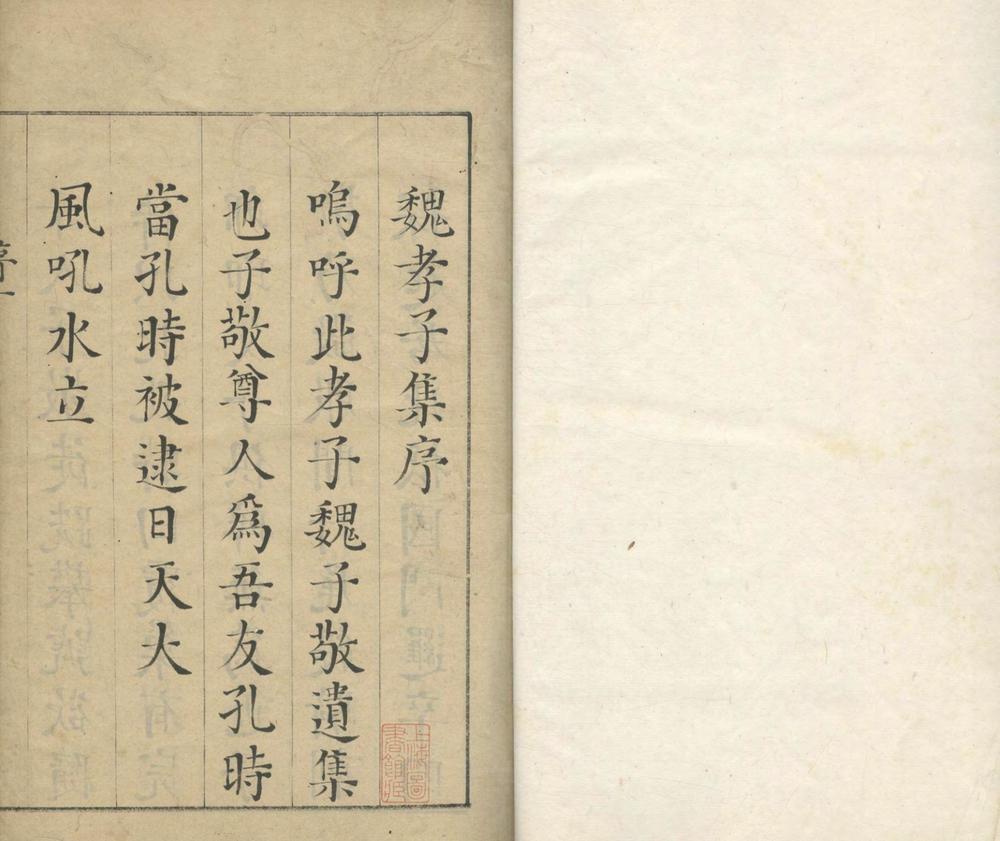 魏孝子集序
嗚呼此孝子魏子敬遺集
也子敬尊人爲吾友孔時
當孔時被逮日天大
風吼水立
序一
上海圖書館藏